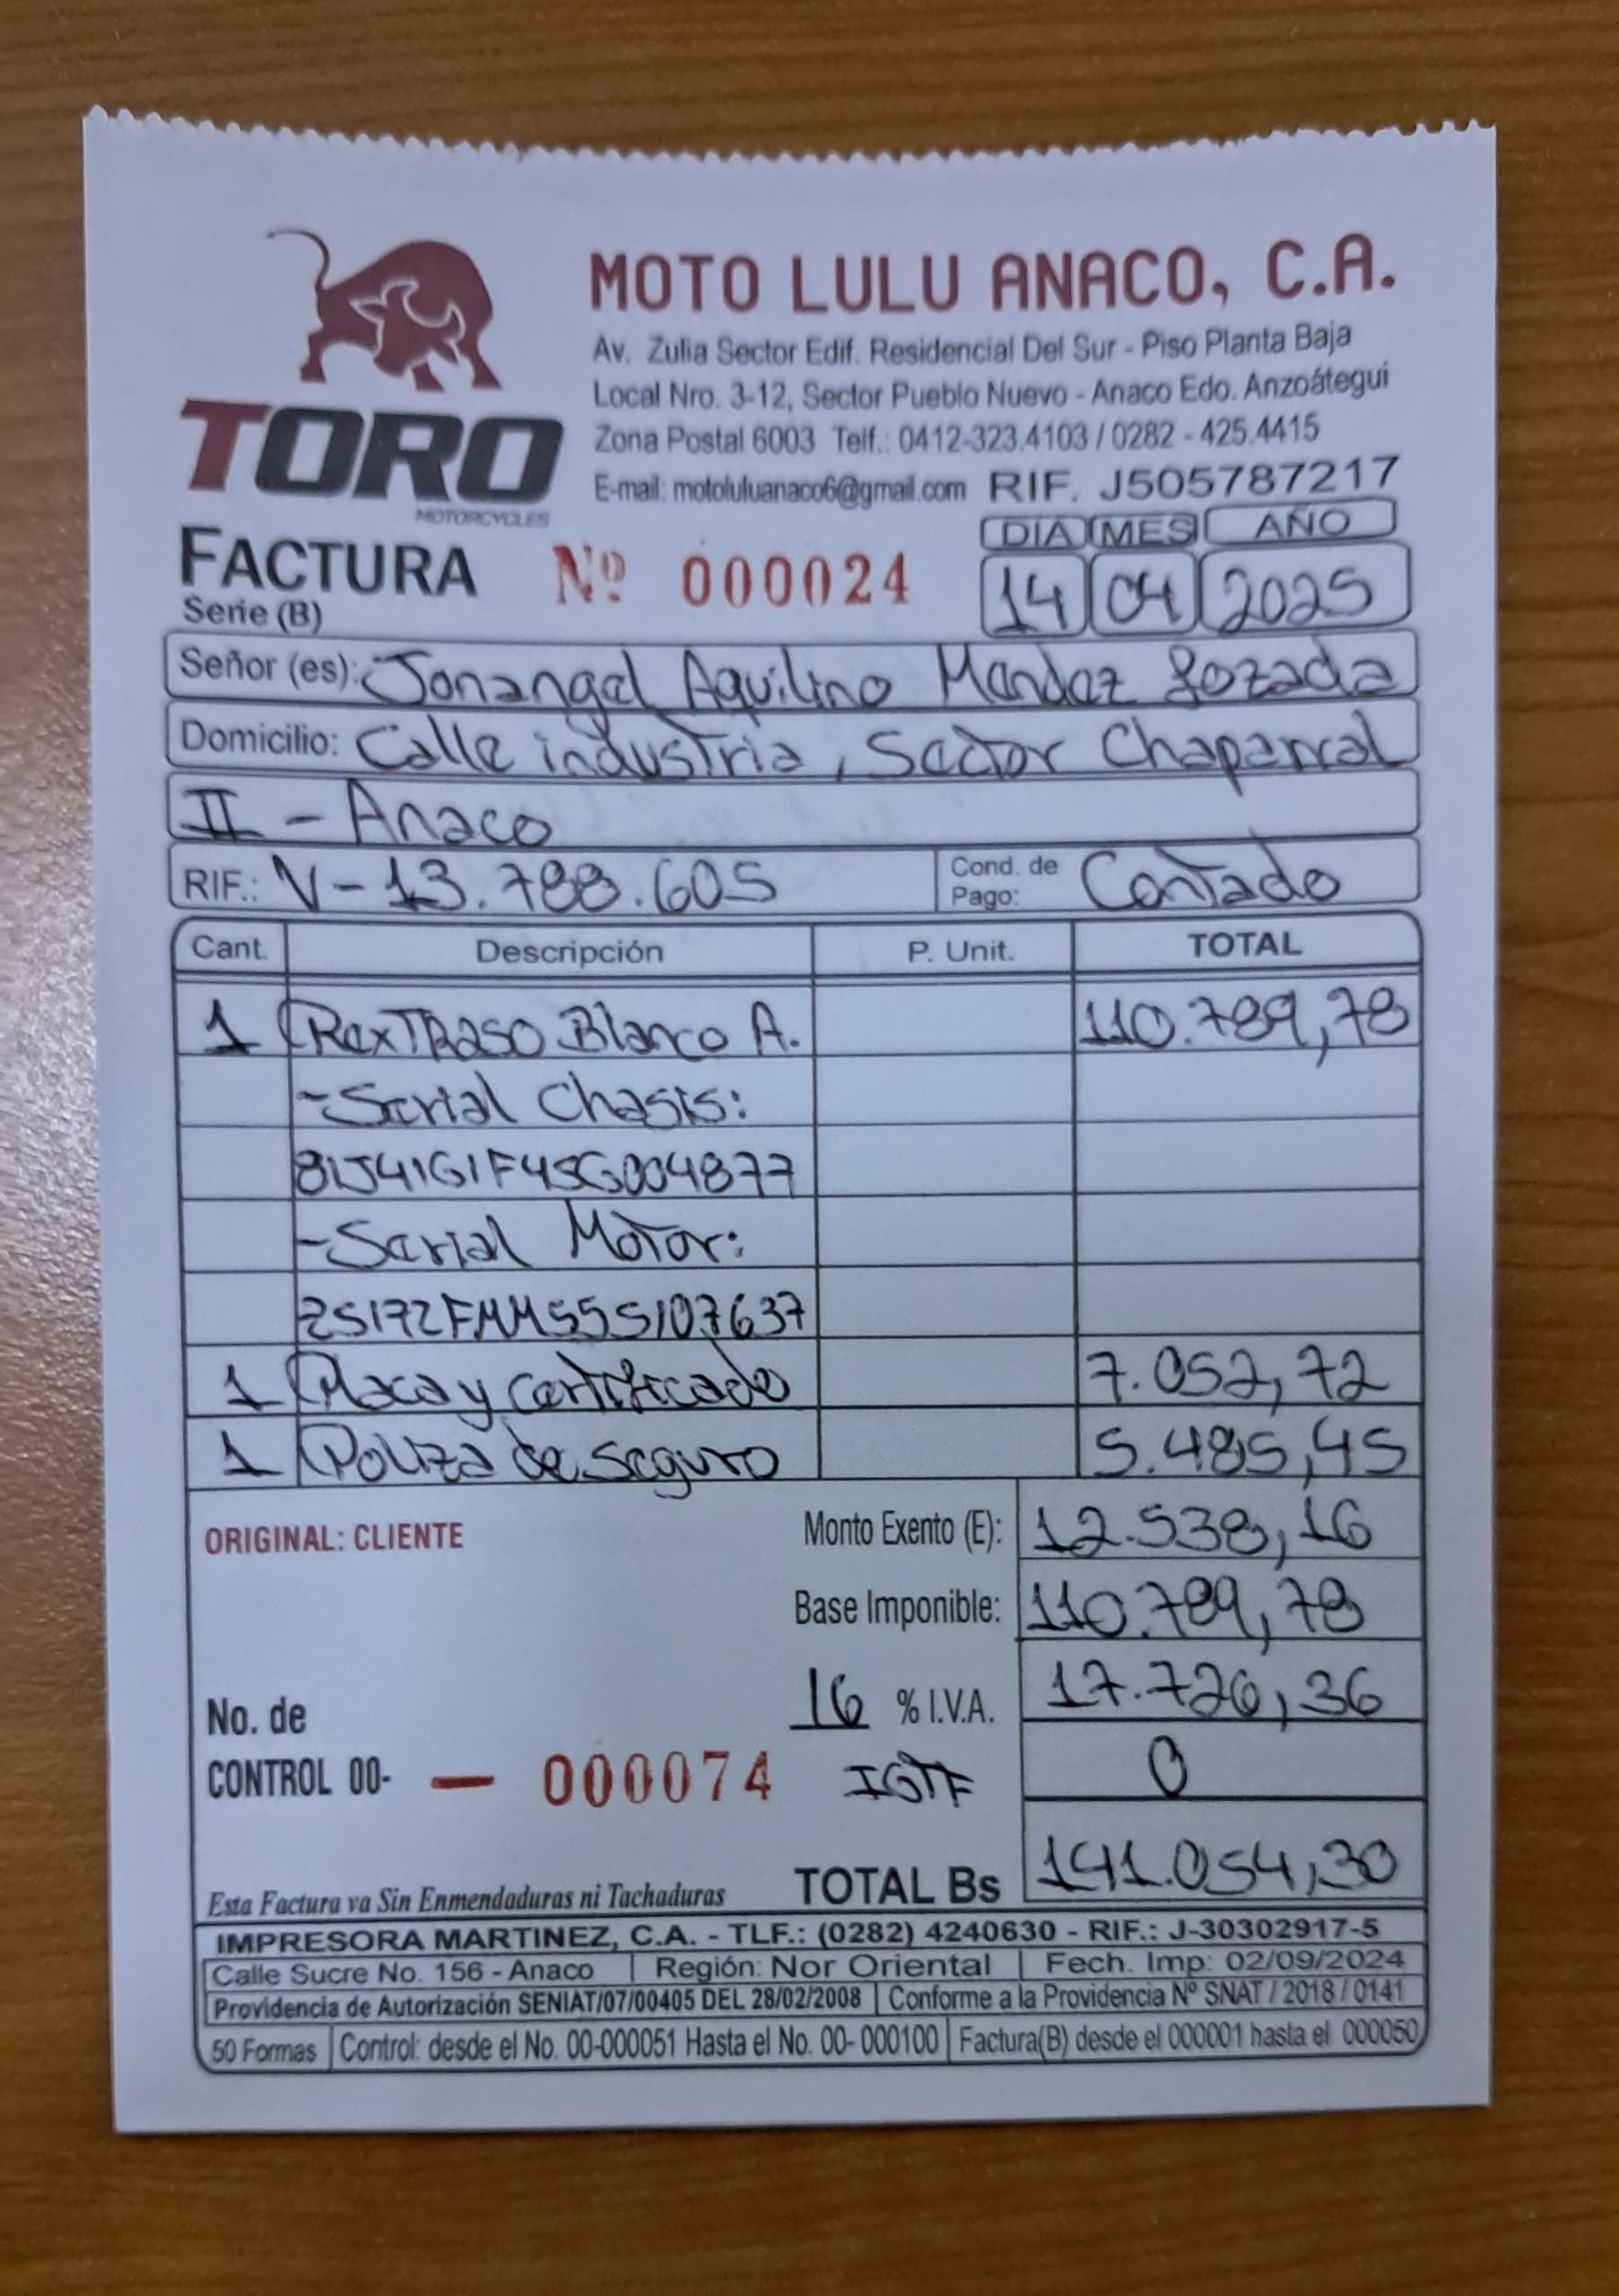 MOTO LULU ANACO, C.A.
Av. Zulia Sector Edif. Residencial Del Sur - Piso Planta Baja
Local Nro. 3-12, Sector Pueblo Nuevo - Anaco Edo. Anzoátegui
Zona Postal 6003 Telf.: 0412-323.4103 / 0282 - 425.4415
E-mail: motoluluanaco6@gmail.com RIF. J505787217
TORO
MOTORCYCLES
DIA MES AÑO
FACTURA Nº 000024 14 04 2025
Serie (B)
Señor (es): Jonangel Aquilino Mendez Lozada
Domicilio: Calle industria, Sector Chaparral
II - Anaco
RIF.: V-13.788.605 Cond. de Pago: Contado
Cant. Descripción P. Unit. TOTAL
1 Rex TR250 Blanco A. 110.789,78
-Serial Chasis:
-Serial Motor:
1 Placa y certificado 7.052,72
1 Poliza de seguro 5.485,45
ORIGINAL: CLIENTE Monto Exento (E): 12.538,16
Base Imponible: 110.789,78
16 % I.V.A. 17.726,36
No. de
CONTROL 00- — 000074 IGTF 0
Esta Factura va Sin Enmendaduras ni Tachaduras TOTAL Bs 141.054,30
IMPRESORA MARTINEZ, C.A. - TLF.: (0282) 4240630 - RIF.: J-30302917-5
Calle Sucre No. 156 - Anaco Región: Nor Oriental Fech. Imp: 02/09/2024
Providencia de Autorización SENIAT/07/00405 DEL 28/02/2008 Conforme a la Providencia Nº SNAT / 2018 / 0141
50 Formas Control: desde el No. 00-000051 Hasta el No. 00- 000100 Factura(B) desde el 000001 hasta el 000050